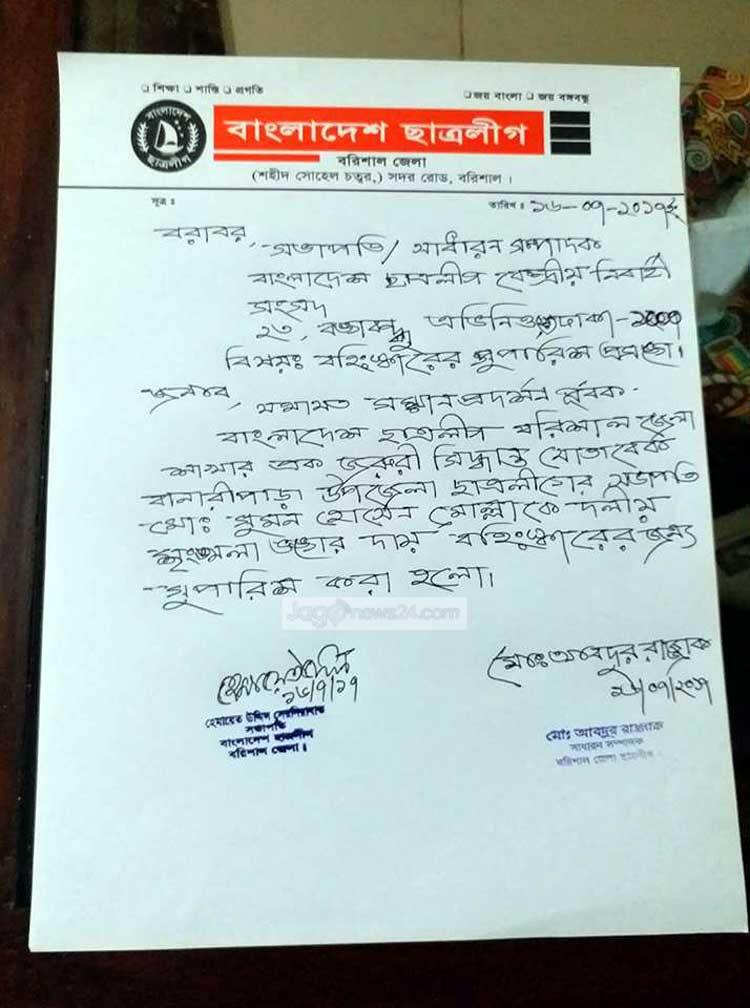 ❑ শিক্ষা ❑ শান্তি ❑ প্রগতি
❑ জয় বাংলা ❑ জয় বঙ্গবন্ধু
বাংলাদেশ ছাত্রলীগ
বাংলাদেশ ছাত্রলীগ
বরিশাল জেলা
(শহীদ সোহেল চত্বর,) সদর রোড, বরিশাল।
সূত্র ঃ
তারিখ ঃ ১৬-০৭-২০১৭ইং
বরাবর,
সভাপতি/ সাধারন সম্পাদক
বাংলাদেশ ছাত্রলীগ কেন্দ্রীয় নির্বাহী
সংসদ
২৩, বঙ্গবন্ধু এভিনিউ ঢাকা-১০০০
বিষয়ঃ বহিঃস্কারের সুপারিশ প্রসঙ্গে।
জনাব,
যথাযত সম্মান প্রদর্শন পূর্বক
বাংলাদেশ ছাত্রলীগ বরিশাল জেলা
শাখার এক জরুরী সিদ্ধান্ত মোতাবেক
বানারীপাড়া উপজেলা ছাত্রলীগের সভাপতি
মোঃ সুমন হোসেন মোল্লাকে দলীয়
শৃংখলা ভঙ্গের দায় বহিঃস্কারের জন্য
সুপারিশ করা হলো।
Jagonews24.com
১৬/৭/১৭
হেমায়েত উদ্দিন সেরনিয়াবাত
সভাপতি
বাংলাদেশ ছাত্রলীগ
বরিশাল জেলা।
মোঃ আবদুর রাজ্জাক
১৬/০৭/২০১৭
মোঃ আবদুর রাজ্জাক
সাধারন সম্পাদক
বরিশাল জেলা ছাত্রলীগ।